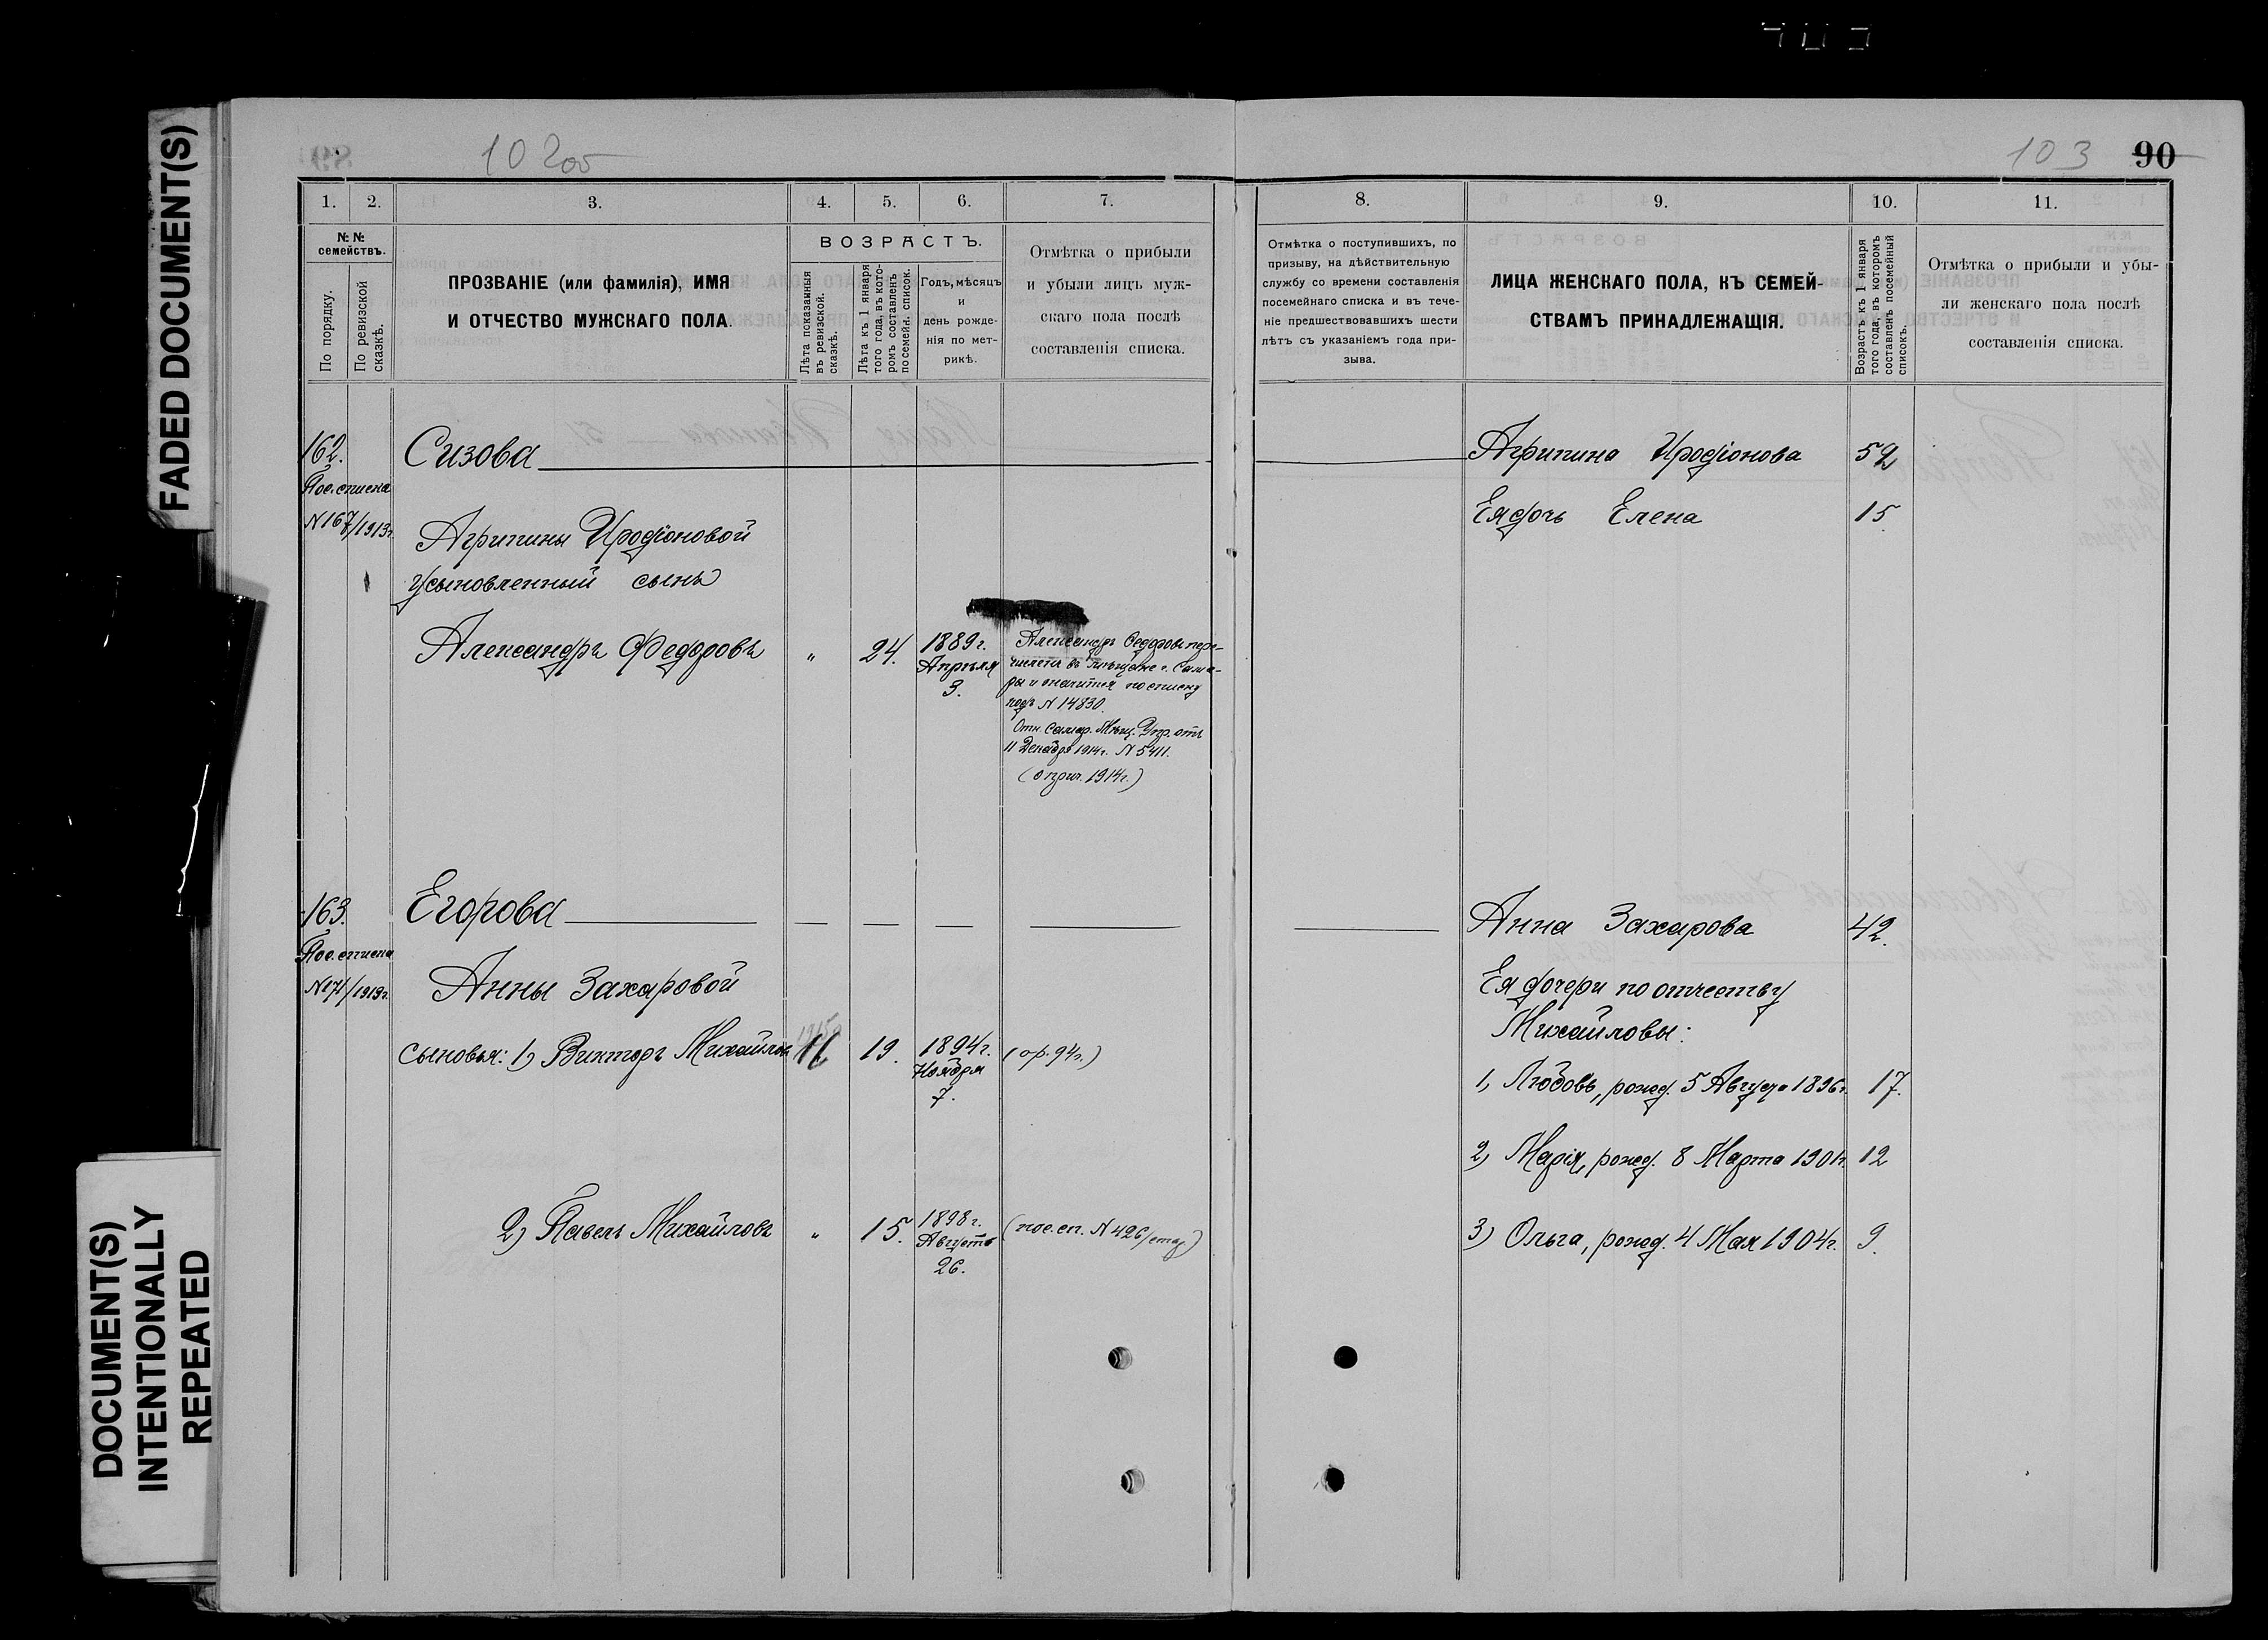 FADED DOCUMENT(S)
DOCUMENT(S)
INTENTIONALLY
REPEATED
102об
103 90
1. 2. 3. 4. 5. 6. 7.
№№ семействъ.
По порядку.
По ревизской сказкѣ.
ПРОЗВАНІЕ (или фамилія), ИМЯ
И ОТЧЕСТВО МУЖСКАГО ПОЛА.
ВОЗРАСТЪ.
Лѣта показамныя въ ревизской. сказкѣ.
Лѣта къ 1 января того года, въ кото-ромъ составленъ посемейн. список.
Годъ, мѣсяцъ
и
день рожде-
нія по мет-
рикѣ.
Отмѣтка о прибыли
и убыли лицъ муж-
скаго пола послѣ
составленія списка.
8. 9. 10. 11.
Отмѣтка о поступившихъ, по
призыву, на дѣйствительную
службу со времени составленія
посемейнаго списка и въ тече-
ніе предшествовавшихъ шести
лѣтъ съ указаніемъ года при-
зыва.
ЛИЦА ЖЕНСКАГО ПОЛА, КЪ СЕМЕЙ-
СТВАМЪ ПРИНАДЛЕЖАЩІЯ.
Возрастъ къ 1 января
того года, въ которомъ
составленъ посемейный
списокъ.
Отмѣтка о прибыли и убы-
ли женскаго пола послѣ
составленія списка.
162. Сизова
Пос. списка
№167/1913г.
Агрипины Иродіоновой
усыновленный сынъ
Александръ Федоровъ " 24. 1889г.
Апрѣля
3.
Александръ Федоровъ пере-
численъ въ мѣщане г. Сама-
ры и значится по списку
подъ № 14830.
Отн. Самар. Мѣщ. Упр. отъ
11 Декабря 1914г. № 5411.
(о прич. 1914г.)
Агрипина Иродіонова 52
Ея дочь Елена 15
163. Егорова
Пос. списка
№171/1913г.
Анны Захаровой
сыновья: 1) Викторъ Михайлов 19. 1894г.
Ноября
7.
(ор. 94г.)
2) Павелъ Михайловъ " 15. 1898г.
Августа
26.
(пос. сп. № 426/стар)
Анна Захарова 42.
Ея дочери по отчеству
Михайловы:
1) Любовь, рожд. 5 Августа 1896г. 17.
2) Марія, рожд. 8 Марта 1901г. 12
3) Ольга, рожд. 4 Мая 1904г. 9.